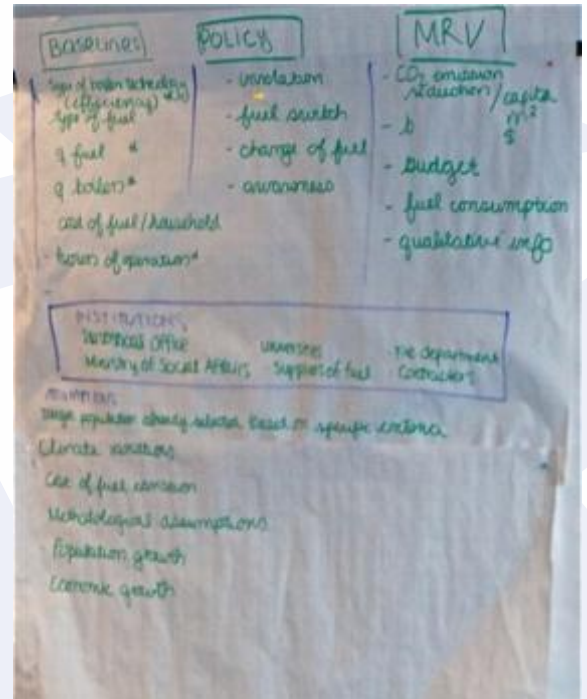 Baselines
type of boiler technology
(efficiency)
type of fuel
q fuel *
q boilers *
cost of fuel/household
- hours of operation *
POLICY
- insolation
- fuel switch
- change of fuel
- awareness
MRV
- CO2 emission
reduction / capita
m2
$
- b
- Budget
- fuel consumption
- qualitative info
INSTITUTIONS
Statistical Office
Universities
Fire department
Ministry of Social Affairs
Suppliers of fuel
Contractors
Target population already selected based on specific criteria
Climate variations
Cost of fuel
Methodological assumptions
Population growth
Economic growth